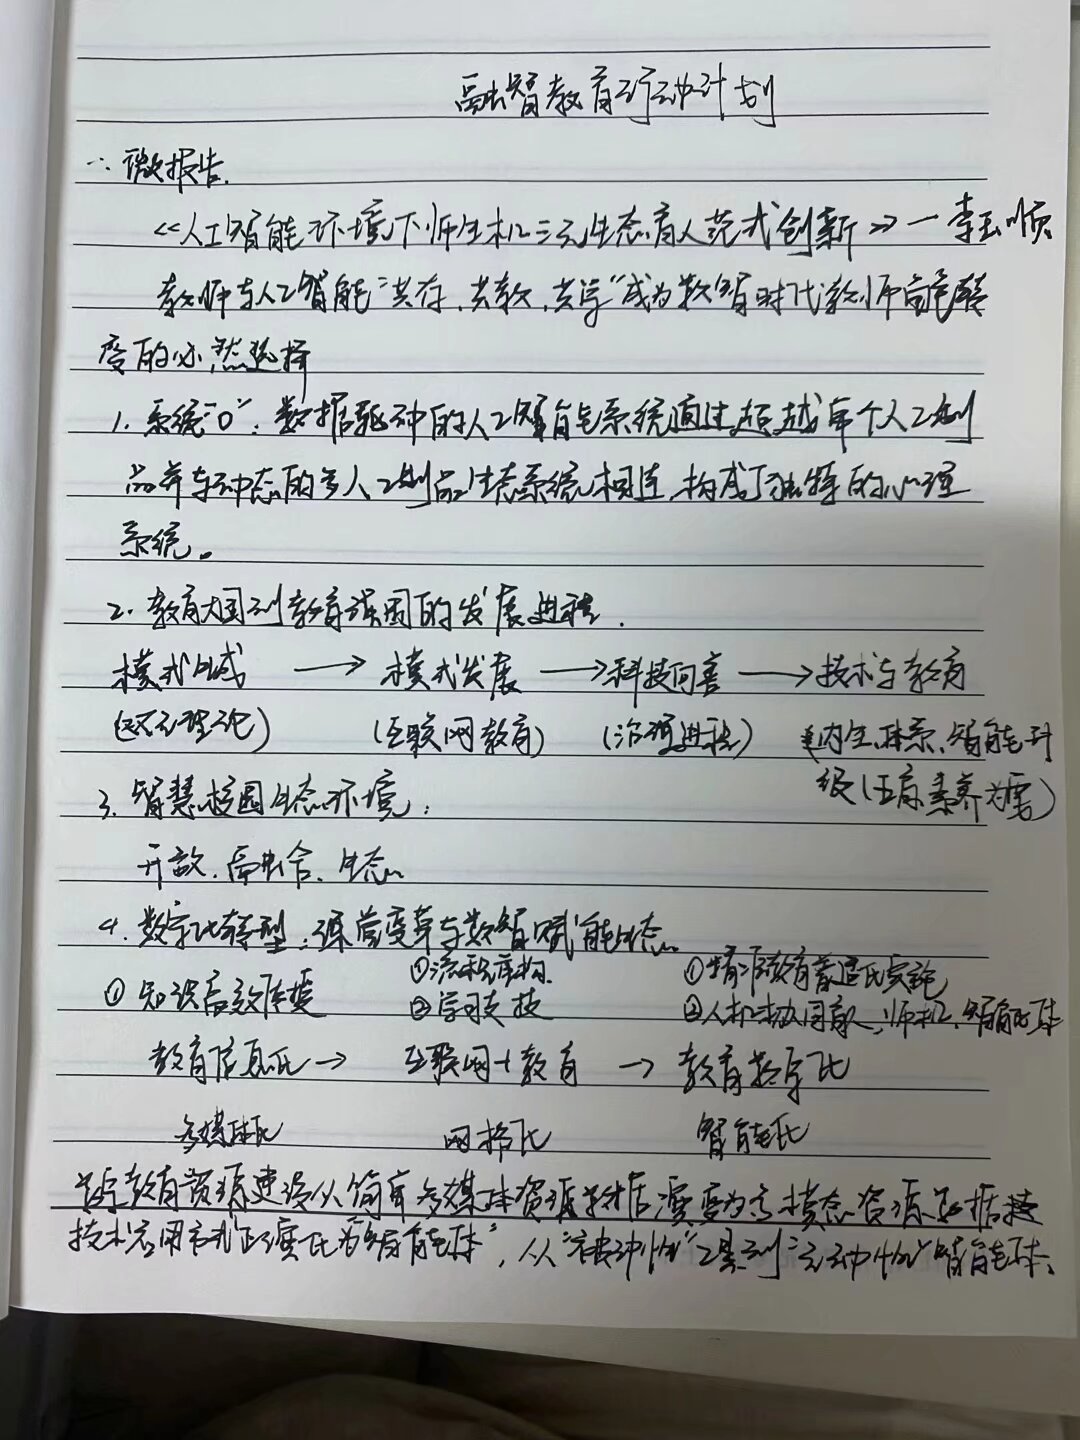 融智教育行动计划
一. 微报告.
《人工智能环境下师生机三元生态育人范式创新》—李玉顺
教师与人工智能"共存.共教.共学"成为数智时代教师高
度的必然选择
1. 系统"0":数据驱动的人工智能系统通过超越单个人工制
品并与动态的多人工制品生态系统相连.构成了独特的心理
系统。
2. 教育大国到教育强国的发展进程.
模式 → 模式发展 → 科技向善 → 技术与教育
(理论) (互联网教育) (治理进程) (内生.体系.智能升
级(五育素养为要)
3. 智慧校园生态环境:
开放.融合.生态
4. 数字化转型:课堂变革与数智赋能生态
①知识高效传授 ① ②学习支技 ①精准教育普适化实施
②人机协同育人,师.机.智能体
教育信息化 → 互联网+教育 → 教育数字化
多媒体化 网络化 智能化
教育资源建设从简单多媒体资源数据演变为多模态资源数据
技术应用方式正演化为"智能体",从"被动性"工具到"主动性"智能体、